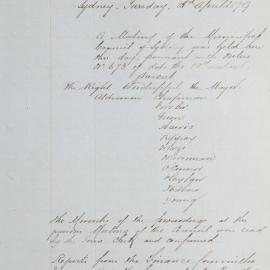 Sydney. Tuesday, April 1879
A Meeting of the Municipal
Council of Sydney was held here
this day, pursuant with Notice
No 673 of date the instant.
present
The Right Worshipful the Mayor.
Aldermen Chapman
Fowler
Green
Harris
Kippax
Meeks
Merriman
O'Connor
Playfair
Young
The Minutes of the Proceedings at the
previous Meeting of the Council were read
by the Town Clerk and confirmed.
Reports from the Finance Committee